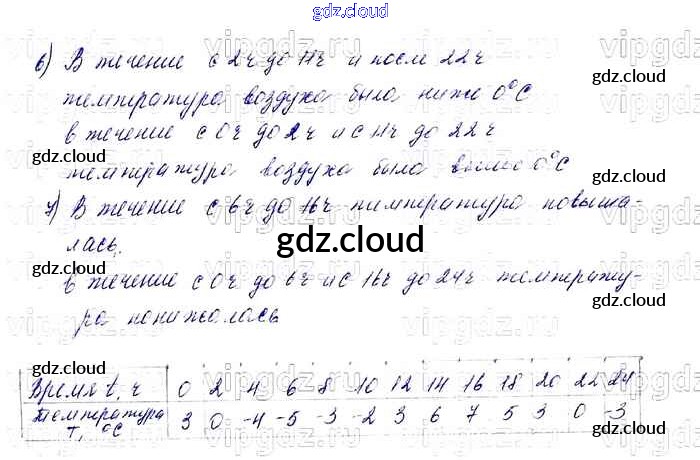 gdz.cloud
6) В течение с 2ч до 11ч и после 22ч
температура воздуха была ниже 0°С
в течение с 0ч до 2ч и с 11ч до 22ч
температура воздуха была выше 0°С
7) В течение с 6ч до 16ч температура повыша-
лась.
в течение с 0ч до 6ч и с 16ч до 24ч температу-
ра понижалась
gdz.cloud
Время t, ч 0 2 4 6 8 10 12 14 16 18 20 22 24
Температура Т, °С 3 0 -4 -5 -3 -2 3 6 7 5 3 0 -3